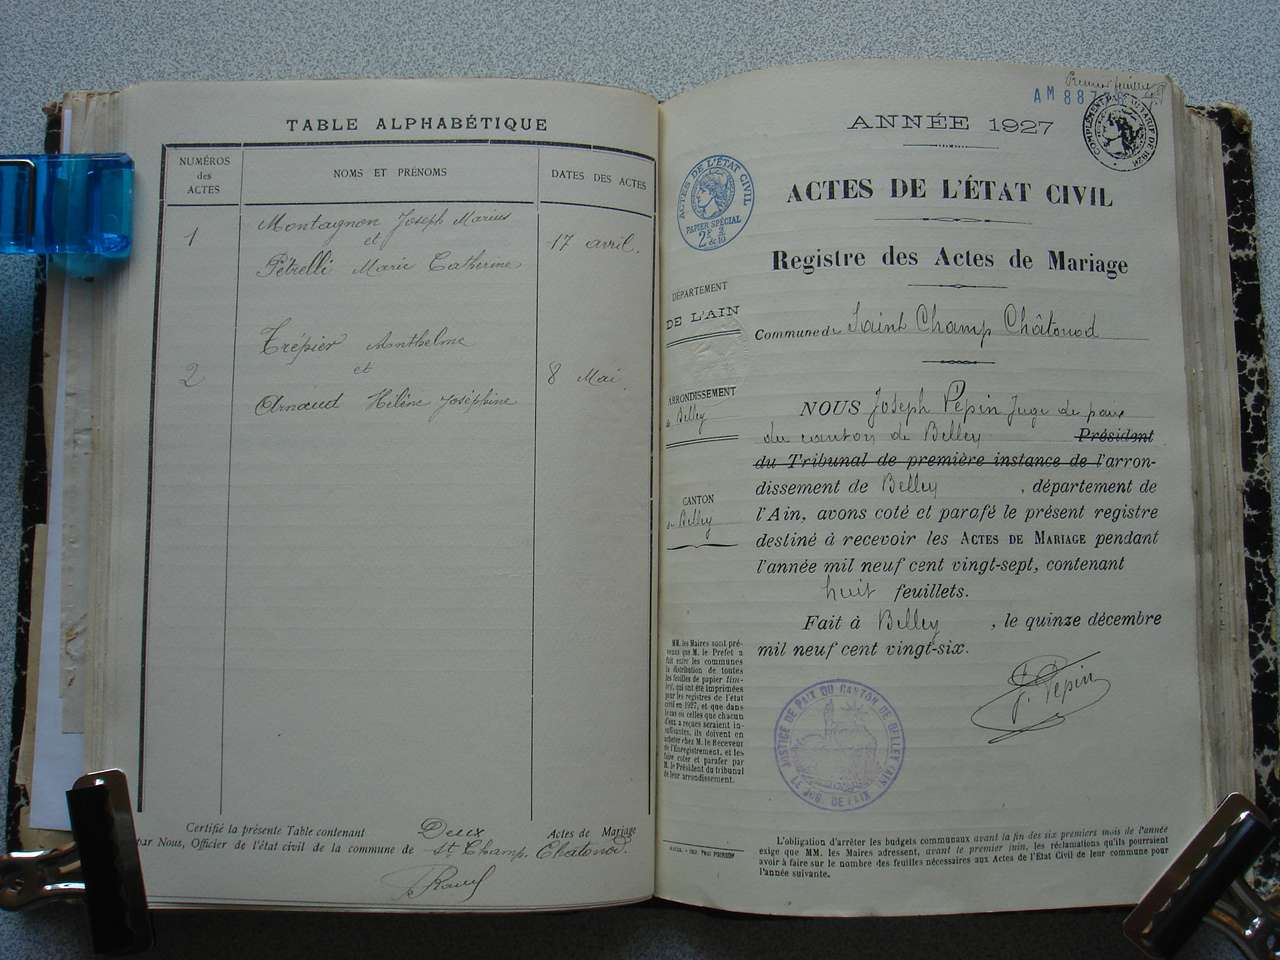 TABLE ALPHABÉTIQUE
NUMÉROS
des
ACTES
NOMS ET PRÉNOMS
DATES DES ACTES
1
Montagnon Joseph Marius
et
Pétrelli Marie Catherine
17 avril.
2
Trépier Anthelme
et
Arnaud Hélène Joséphine
8 Mai.
Certifié la présente Table contenant Deux Actes de Mariage
par Nous, Officier de l'état civil de la commune de St Champ. Chatonod.
Premier feuillet
AM 887
COMPLÉMENT AU TARIF DE
ANNÉE 1927
ACTES DE L'ÉTAT CIVIL
PAPIER SPÉCIAL
ACTES DE L'ÉTAT CIVIL
Registre des Actes de Mariage
DÉPARTEMENT
DE L'AIN
Commune de Saint Champ Châtonod
ARRONDISSEMENT
de Belley
CANTON
de Belley
NOUS Joseph Pépin Juge de paix
du canton de Belley Président
du Tribunal de première instance de l'arron-
dissement de Belley , département de
l'Ain, avons coté et parafé le présent registre
destiné à recevoir les ACTES DE MARIAGE pendant
l'année mil neuf cent vingt-sept, contenant
huit feuillets.
Fait à Belley , le quinze décembre
mil neuf cent vingt-six.
J. Pépin
MM. les Maires sont pré-
venus que M. le Préfet a
fait entre les communes
la distribution de toutes
les feuilles de papier tim-
bré, qui ont été imprimées
pour les registres de l'état
civil en 1927, et que dans
le cas où celles que chacun
d'eux a reçues seraient in-
suffisantes, ils doivent en
acheter chez M. le Receveur
de l'Enregistrement, et les
faire coter et parafer par
M. le Président du tribunal
de leur arrondissement.
JUSTICE DE PAIX DU CANTON DE BELLEY (AIN)
LE JUG. DE PAIX
L'obligation d'arrêter les budgets communaux avant la fin des six premiers mois de l'année
exige que MM. les Maires adressent, avant le premier juin, les réclamations qu'ils pourraient
avoir à faire sur le nombre des feuilles nécessaires aux Actes de l'État Civil de leur commune pour
l'année suivante.